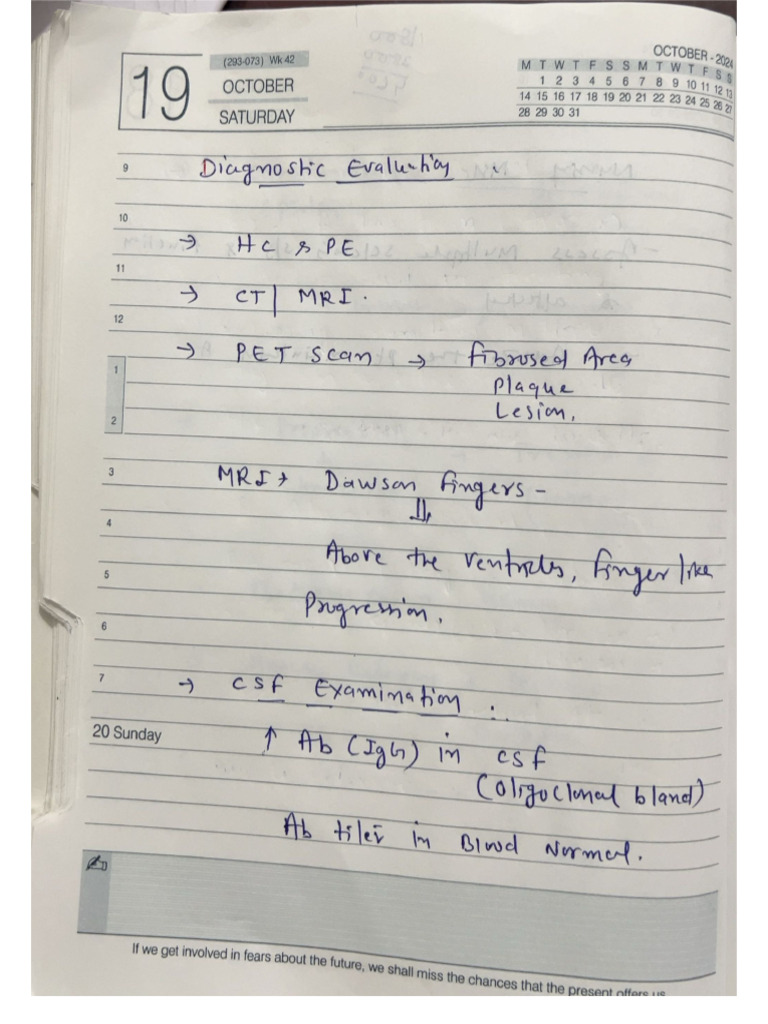 OCTOBER - 2024
M T W T F S S M T W T F S S
1 2 3 4 5 6 7 8 9 10 11 12 13
14 15 16 17 18 19 20 21 22 23 24 25 26 27
28 29 30 31
19
(293-073) Wk 42
OCTOBER
SATURDAY
9 Diagnostic Evaluation
10
→ HC & PE
11
→ CT | MRI.
12
→ PET Scan → Fibrosed Area
1
Plaque
Lesion.
2
3 MRI → Dawson Fingers -
⇓
4
Above the Ventricles, Finger like
5
Progression.
6
7 → CSF Examination :
20 Sunday
↑ Ab (IgG) in CSF
(Oligoclonal bland)
Ab titer in Blood Normal.
If we get involved in fears about the future, we shall miss the chances that the present offers us